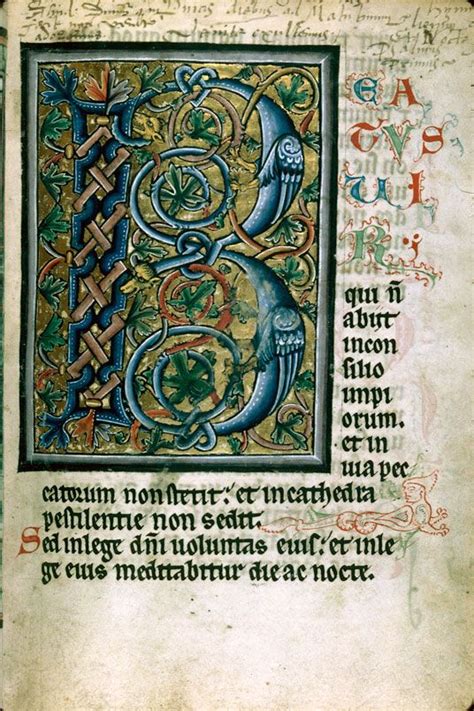 B
EA
TVS
UI
R
qui n̄
abijt
incon
silio
impi
orum.
et in
uia pec
catorum non stetit: et in cathedra
pestilentie non sedit.
Sed in lege dn̄i uoluntas eius: et in le
ge eius meditabitur die ac nocte.